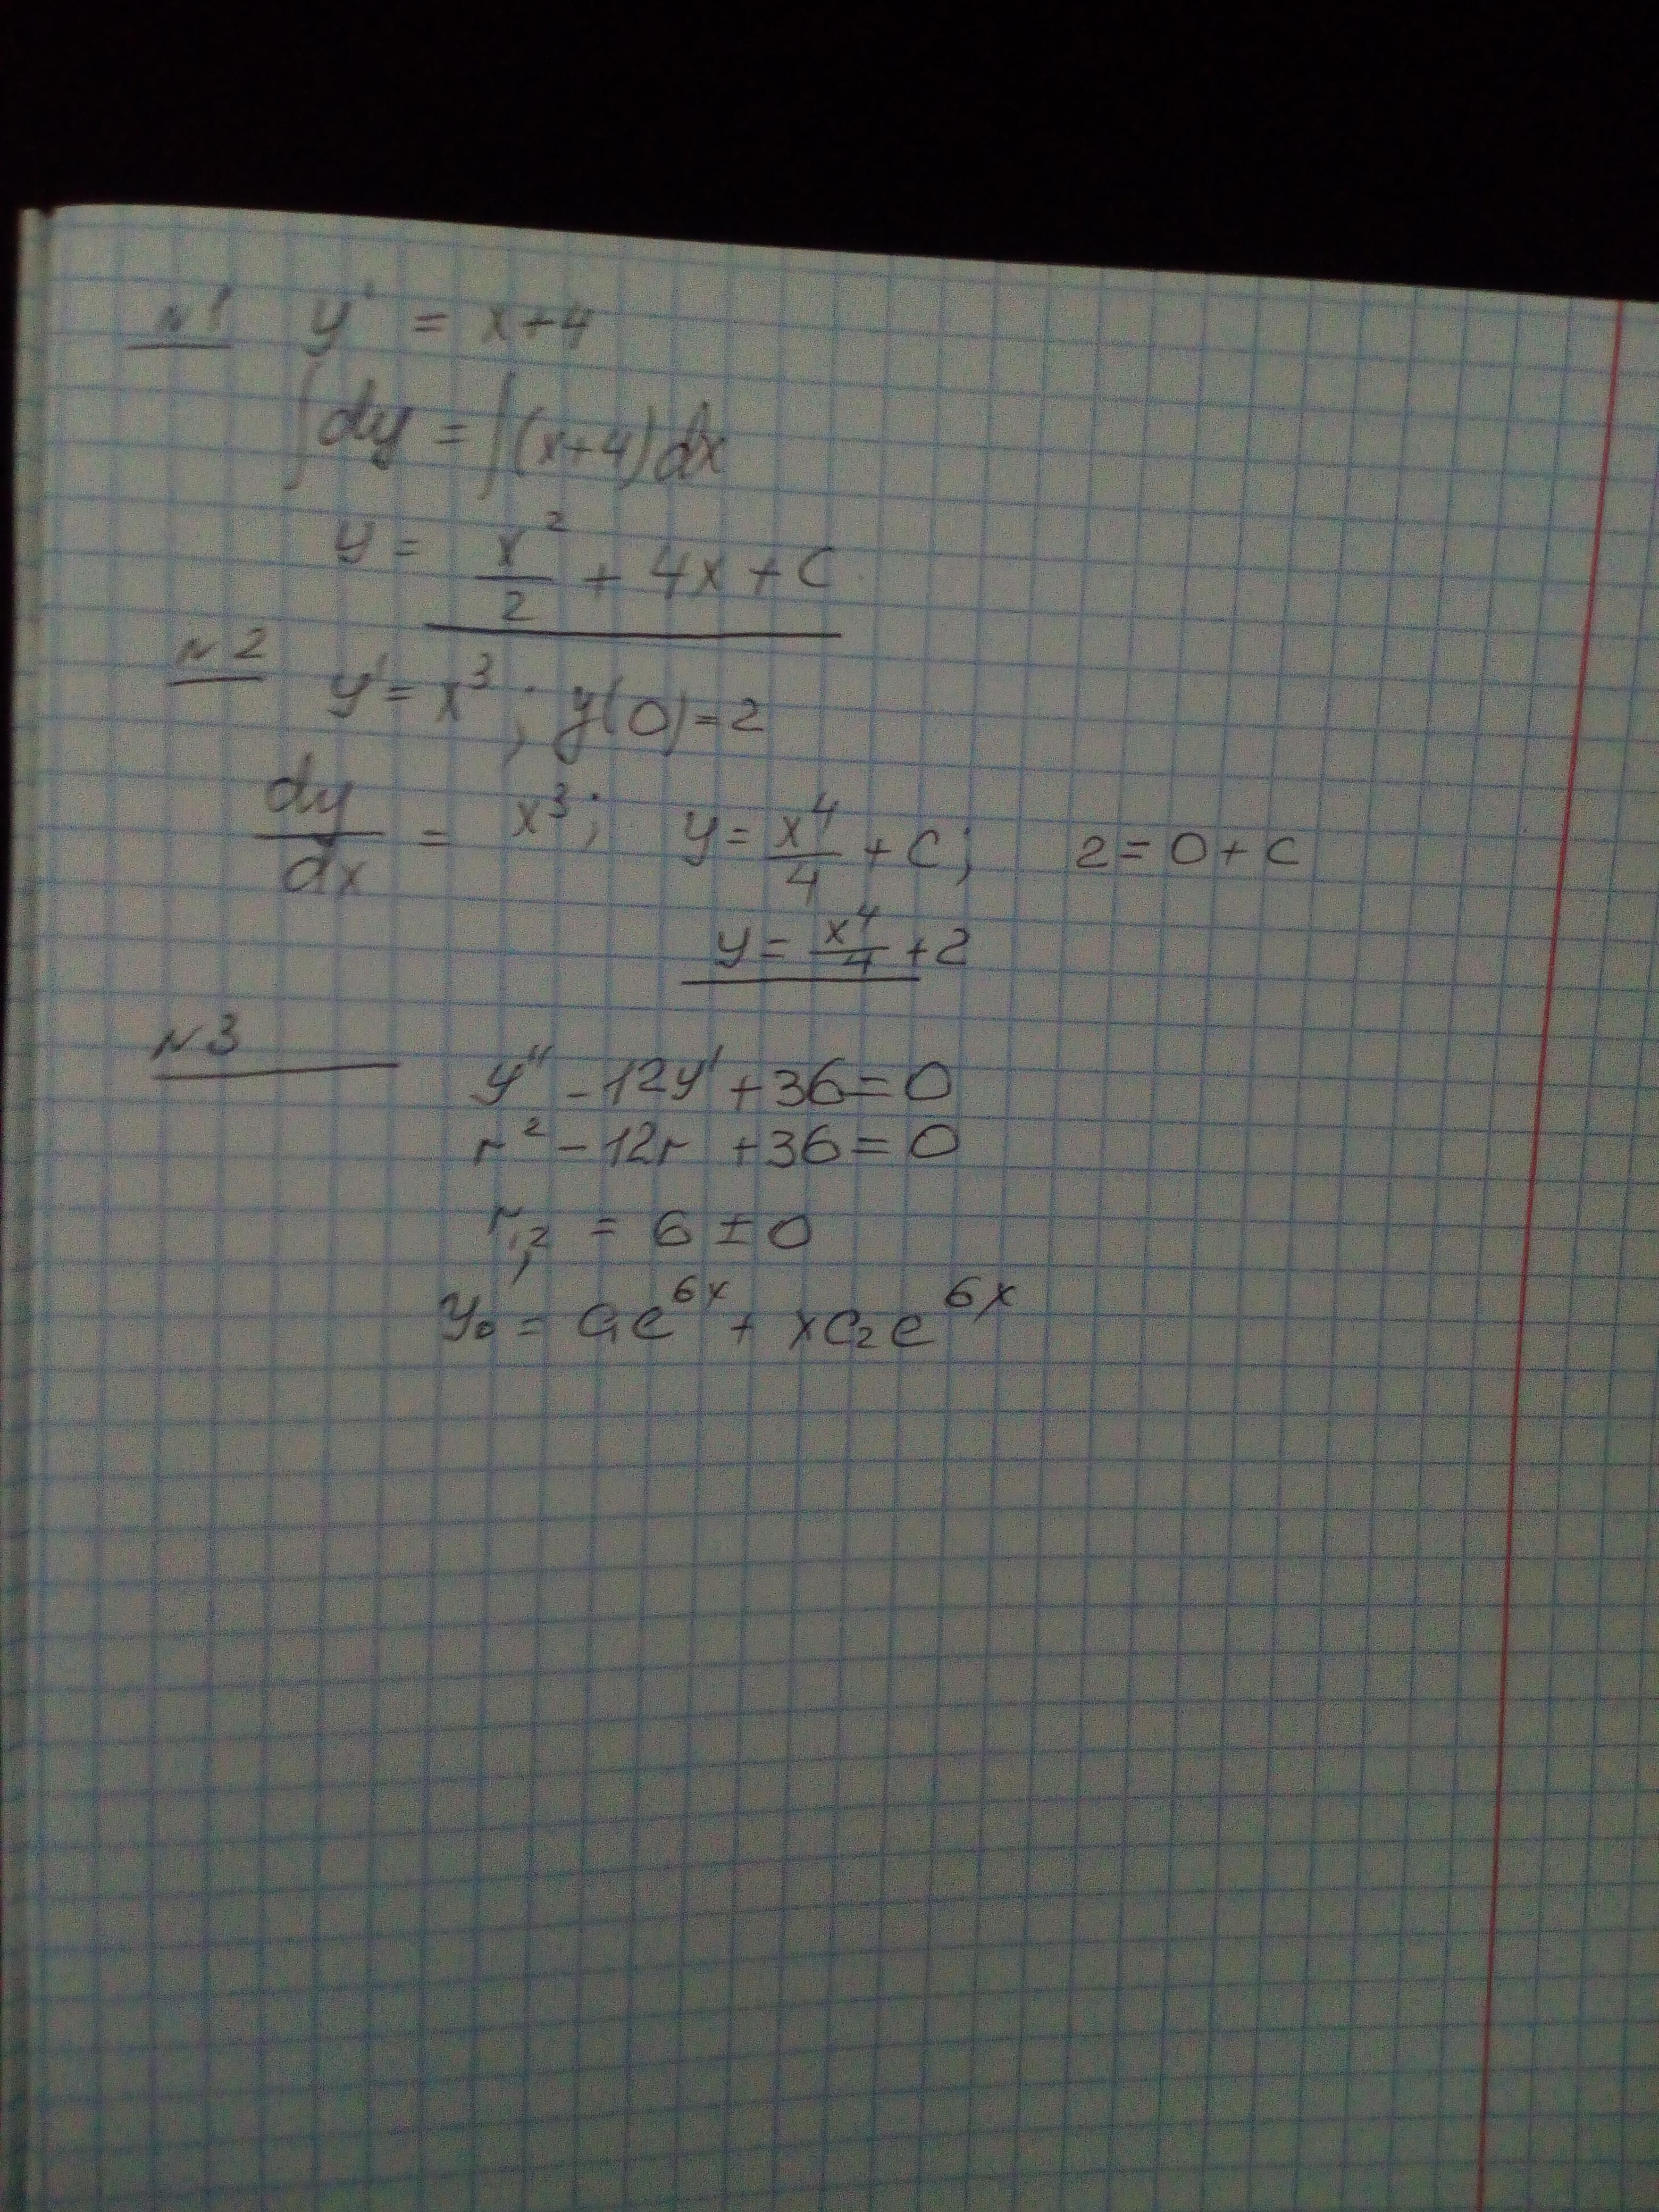 N1 y' = x+4
∫dy = ∫(x+4)dx
y = x²/2 + 4x + C
N2
y' = x³; y(0)=2
dy/dx = x³; y = x⁴/4 + C; 2 = 0 + C
y = x⁴/4 + 2
N3
y'' - 12y' + 36 = 0
r² - 12r + 36 = 0
r₁,₂ = 6 ± 0
y₀ = C₁e⁶ˣ + xC₂e⁶ˣ